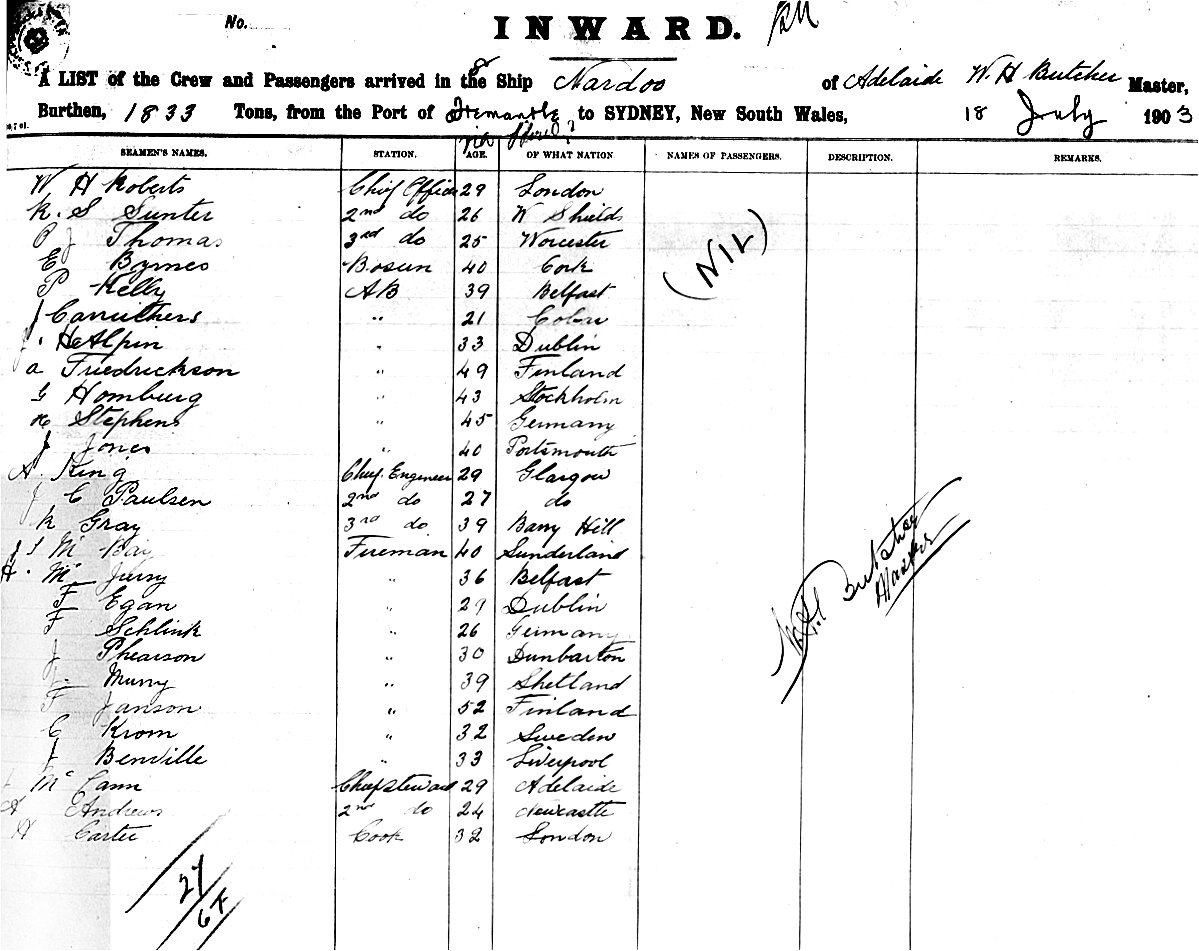 No.
INWARD.
A LIST of the Crew and Passengers arrived in the Ship Nardoo of Adelaide W. H Butcher Master,
Burthen, 1833 Tons, from the Port of Fremantle to SYDNEY, New South Wales, 18 July 1903
via
SEAMEN'S NAMES. STATION. AGE. OF WHAT NATION NAMES OF PASSENGERS. DESCRIPTION. REMARKS.
W H Roberts Chief Officer 29 London
R. S Sunter 2nd do 26 W Shields
P J Thomas 3rd do 25 Worcester
E Byrnes Bosun 40 Cork
P Kelly AB 39 Belfast
(NIL)
J Carruthers " 21
J. HeAlpin " 33 Dublin
a Friedrickson " 49 Finland
G Homburg " 43 Stockholm
H Stephens " 45 Germany
J Jones " 40 Portsmouth
A. King Chief Engineer 29 Glasgow
J C Paulsen 2nd do 27 do
R Gray 3rd do 39 Barry Hill
J S Mc Fireman 40 Sunderland
H. Mc " 36 Belfast
F Egan " 29 Dublin
F Schlink " 26 Germany
J Phearson " 30 Dunbarton
J. Murry " 39 Shetland
F Janson " 52 Finland
C Krom " 32 Sweden
J Benville " 33 Liverpool
Mc Cann Chief steward 29 Adelaide
A Andrews 2nd do 24 Newcastle
H Carter Cook 32 London
W. H Butcher
Master
27